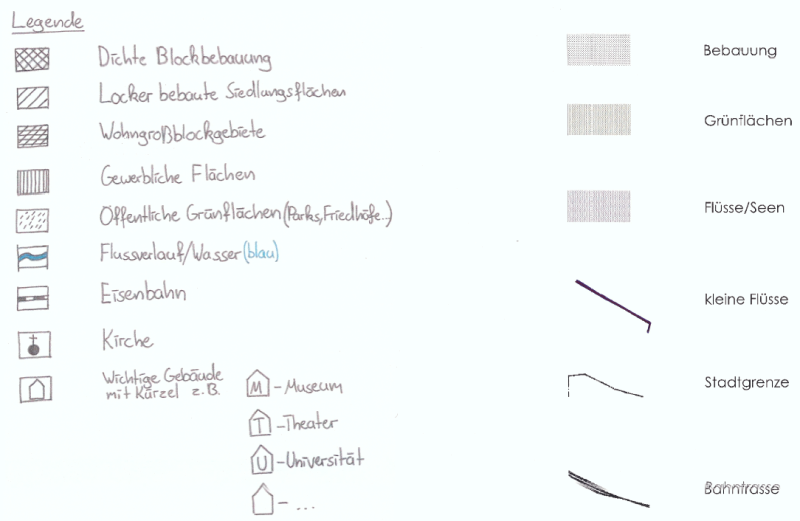 Legende
Dichte Blockbebauung
Locker bebaute Siedlungsflächen
Wohngroßblockgebiete
Gewerbliche Flächen
Öffentliche Grünflächen (Parks, Friedhöfe..)
Flussverlauf/Wasser (blau)
Eisenbahn
Kirche
Wichtige Gebäude
mit Kürzel z.B.
M - Museum
T - Theater
U - Universität
- ...
Bebauung
Grünflächen
Flüsse/Seen
kleine Flüsse
Stadtgrenze
Bahntrasse